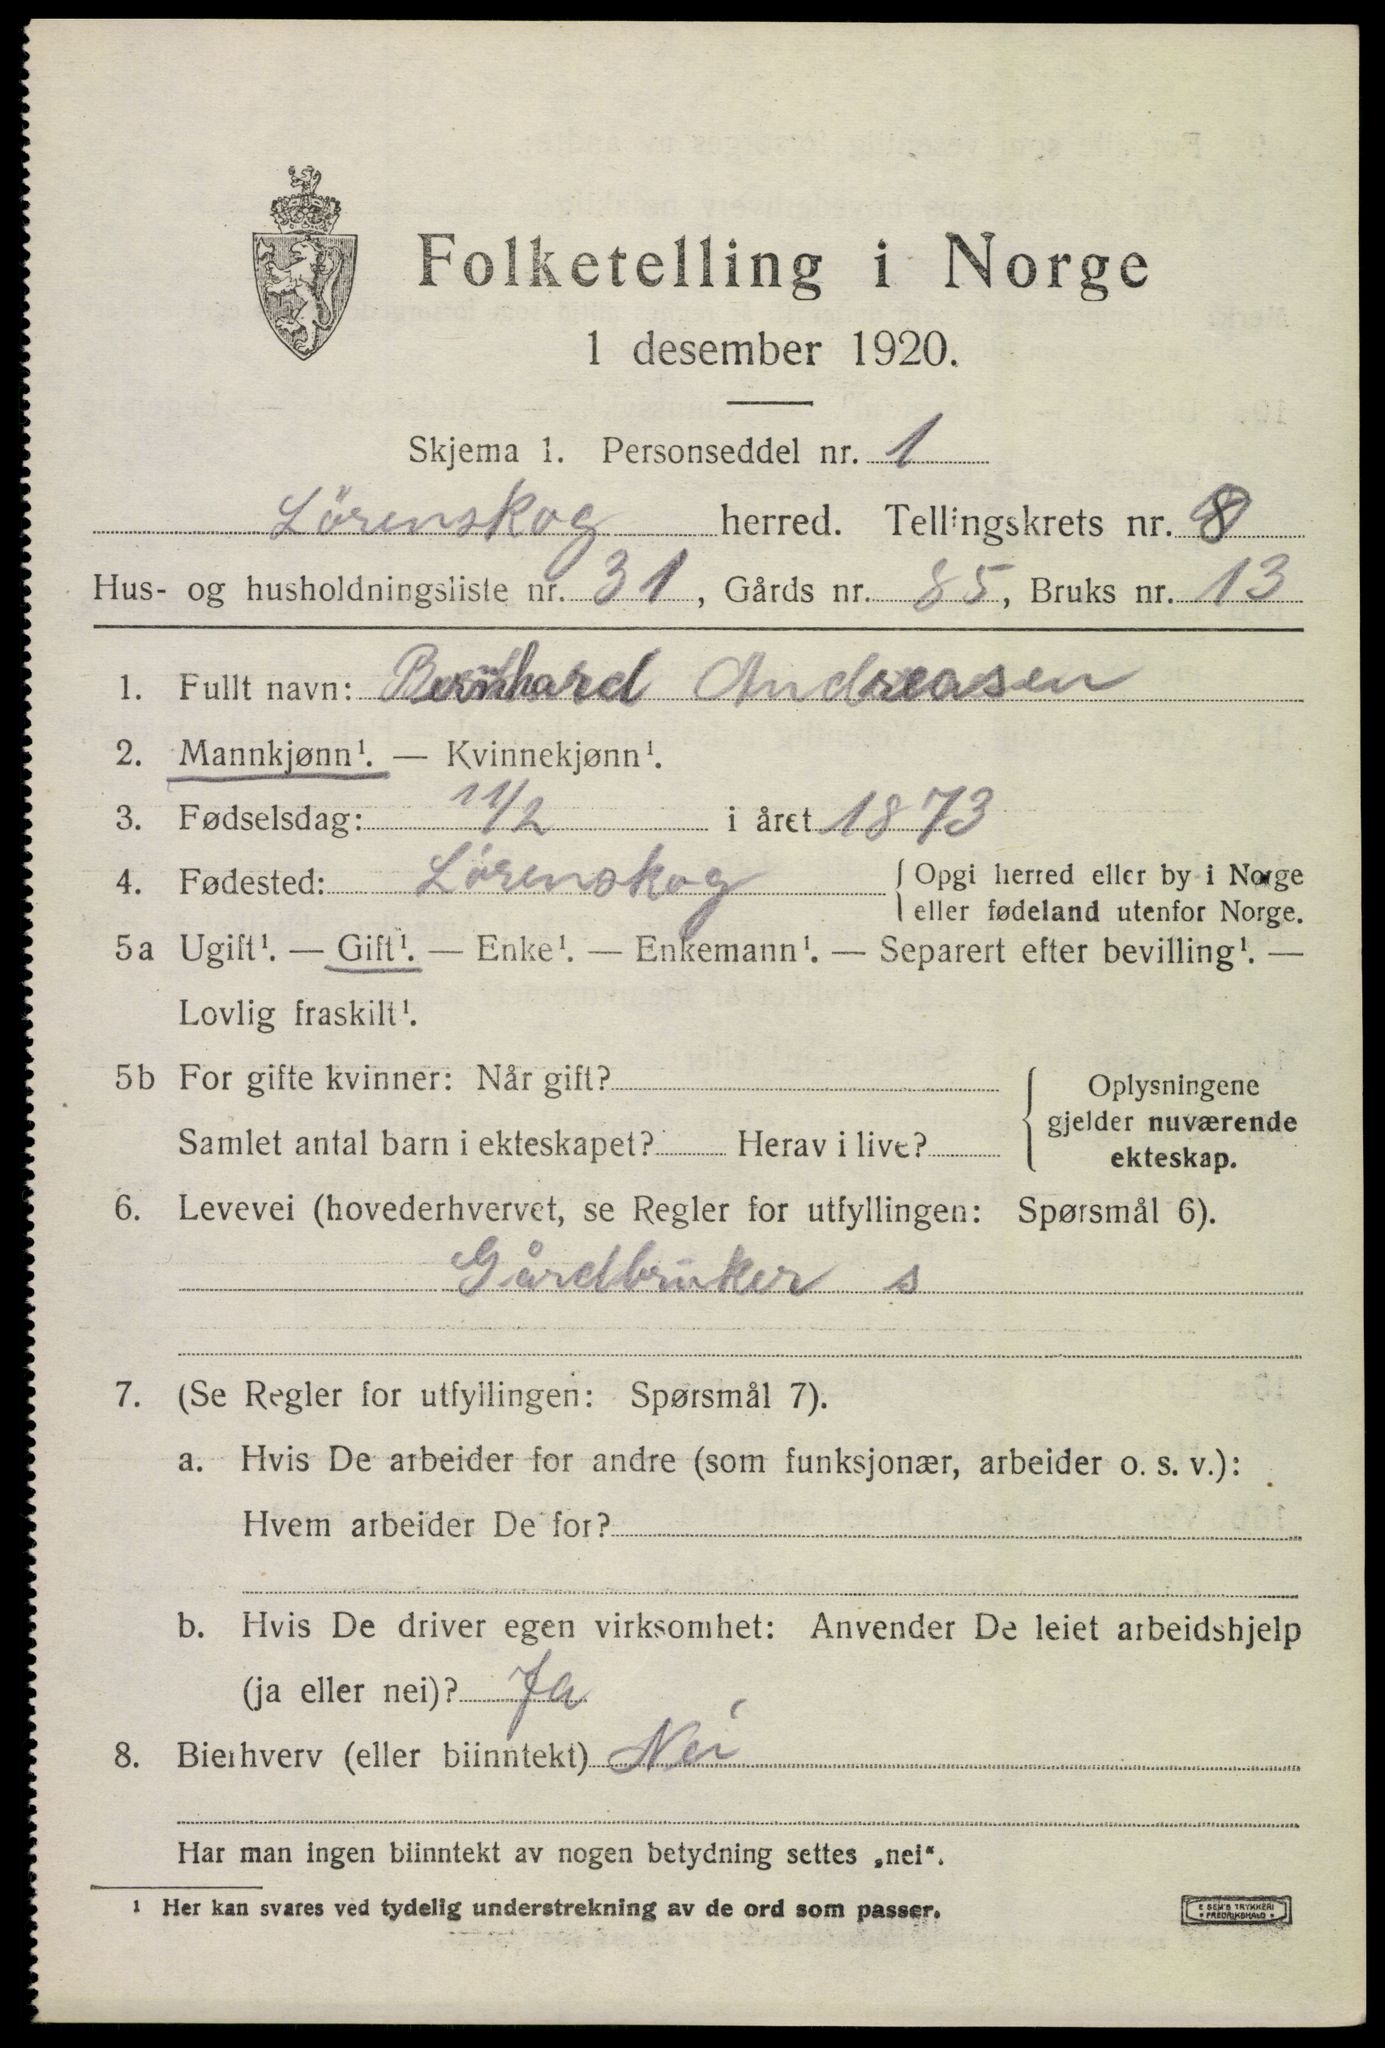 Folketelling i Norge
1 desember 1920.
Skjema 1. Personseddel nr. 1
Lörenskog herred. Tellingskrets nr. 8
Hus- og husholdningsliste nr. 31, Gårds nr. 85, Bruks nr. 13
1. Fullt navn: Bernhard Andreasen
2. Mannkjønn¹. — Kvinnekjønn¹.
3. Fødselsdag: 11/2 i året 1873
4. Fødested: Lörenskog { Opgi herred eller by i Norge
eller fødeland utenfor Norge.
5a Ugift¹. — Gift¹. — Enke¹. — Enkemann¹. — Separert efter bevilling¹. —
Lovlig fraskilt¹.
5b For gifte kvinner: Når gift?
Samlet antal barn i ekteskapet? Herav i live?
{ Oplysningene
gjelder nuværende
ekteskap.
6. Levevei (hovederhvervet, se Regler for utfyllingen: Spørsmål 6).
Gårdbruker s
7. (Se Regler for utfyllingen: Spørsmål 7).
a. Hvis De arbeider for andre (som funksjonær, arbeider o. s. v.):
Hvem arbeider De for?
b. Hvis De driver egen virksomhet: Anvender De leiet arbeidshjelp
(ja eller nei)? Ja
8. Bierhverv (eller biinntekt) Nei
Har man ingen biinntekt av nogen betydning settes „nei“.
¹ Her kan svares ved tydelig understrekning av de ord som passer.
E SEM'S TRYKKERI
FREDRIKSHALD